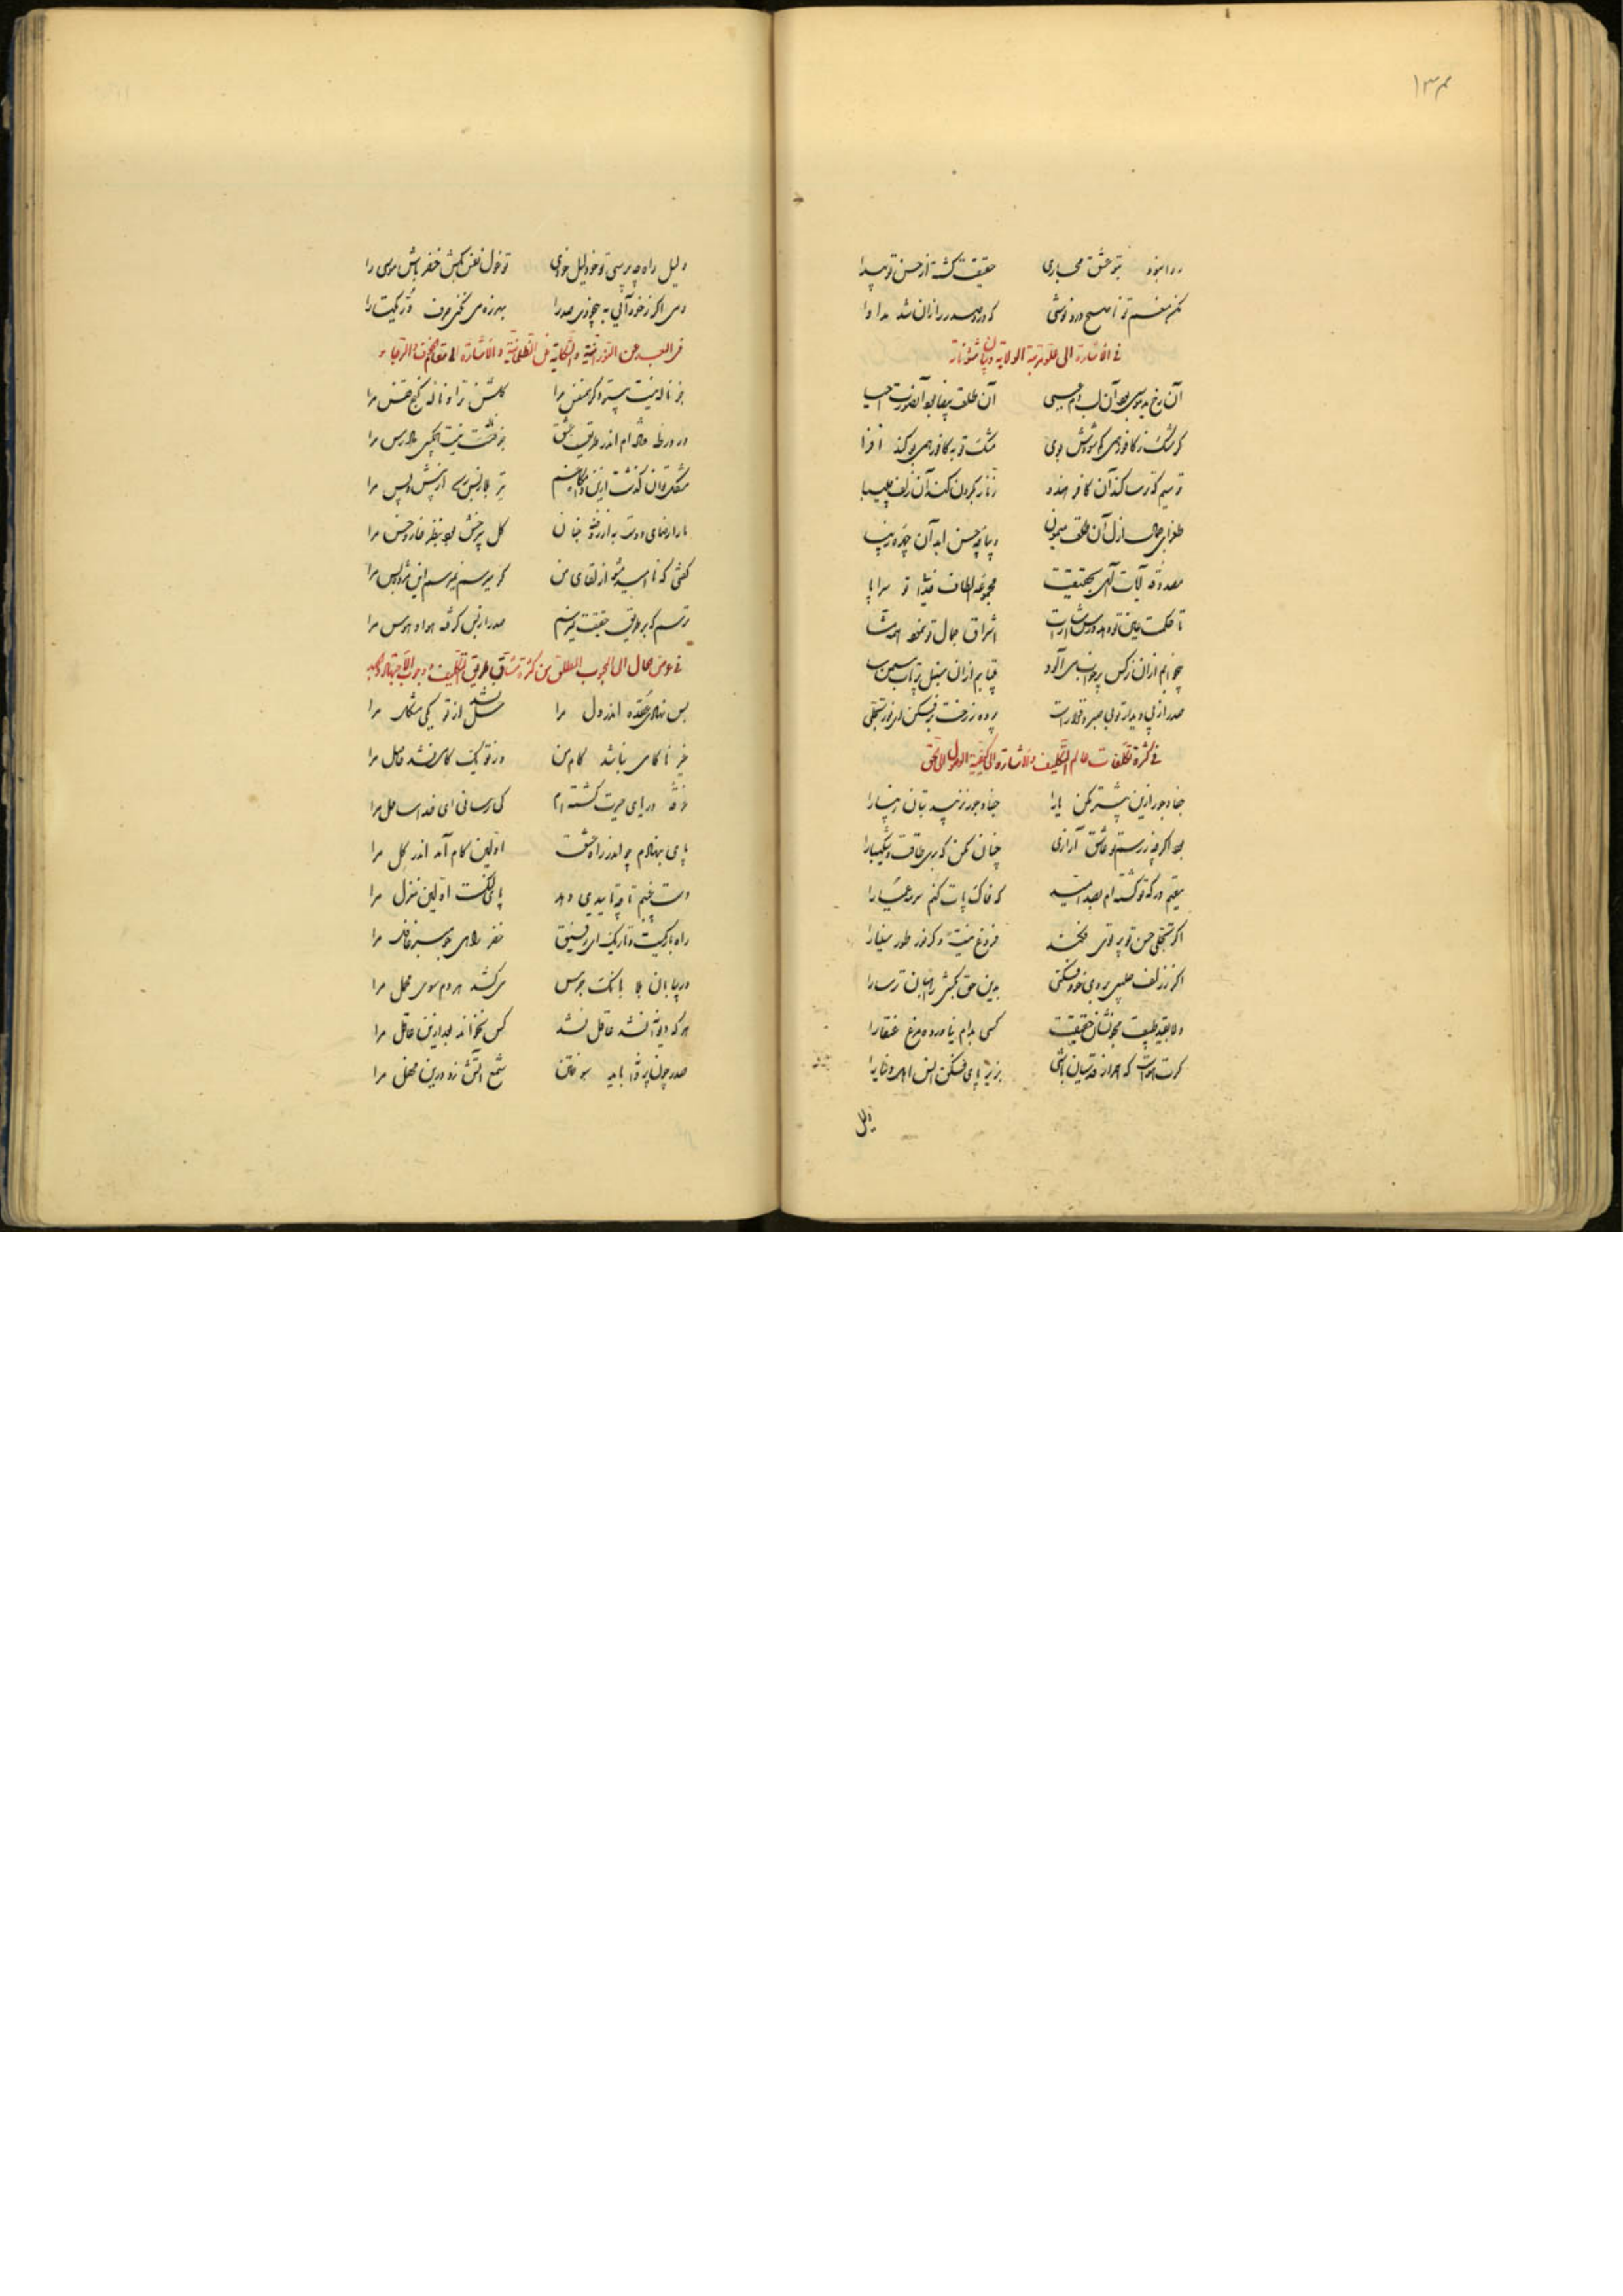 ۱۳۴
روا نبود بتو عشق مجازی حقیقت گشته از حسن تو پیدا
مکن منعم تو ناصح درد نوشی که درد صدر از آن شد مداوا
فی الاشارة الی علو مرتبة الولایة و بیان شئوناته
آن رخ ید موسی بود آن لب دم عیسی آن طلعت بیضا بود آن صورت احیا
گر مشک ز کافور همی شورش بوی مشک تو به کافور همی بو کند افزا
ترسم که ترسا کند آن کافر هندو زنار بگردن کند آن زلف چلیپا
طغرای جمال ازل آن طلعت میمون دیباچه حسن ابد آن چهره زیبا
مصدوقه آیات الهی بحقیقت مجموعه الطاف خدا تو سراپا
تا حکمت عین تو دهد درس اشارات اشراق جمال تو نمط
بیخوابم از آن نرگس پر خواب می آلود بیتابم از آن سنبل پرتاب سمن سا
صدر از پی دیدار تو بی صبر و قرار است پرده ز رخت برفکن ای نور تجلی
فی کثرة تکلفات عالم التکلیف و الاشارة الی کیفیة الوصول الی الحق
جفا و جور ازین بیشتر مکن یارا جفا و جور نزیبد بتان زیبا را
بود اگر چه رسم تو عاشق آزاری چنان مکن که بری طاقت و شکیبا را
مقیم درگه تو گشته ام بصد امید که خاک پات کنم سرمه
اگر تجلی حسن تو پرتوی فکند فروغ نیست دگر نور طور سینا را
اگر ز زلف صلیبی بروی خود فکنی بدین حق بکشی راهبان ترسا را
دلا بقید طبیعت مجو نشان حقیقت کسی بدام نیاورده مرغ عنقا را
گرت هواست که همراز قدسیان باشی بزیر پای فکن نفس
دلیل
دلیل راه چه پرسی تو خود دلیل خودی تو غول نفس بکش خضر باش موسی را
دمی اگر ز خود آئی به بیخودی صدرا بهرزه می نکنی صرف در یکتا را
فی البعد عن النورانیة و الشکایة من الظلمانیة و الاشارة الی مقام الخوف و الرجاء
جز ناله نیست پیشه دگر همنفس مرا گلشن ترا و خانه کنج قفس مرا
در ورطه مانده ام اندر طریق عشق جز نیست بیکسی دادرس مرا
مشکل توان گذشت ازین تیر بلا رسد از پیش و پس مرا
ما را رضای دوست به از روضه جنان گل پیرهنش بود بنظر خار و خس مرا
گفتی که ناامید مشو از لقای من گر میرسم نمیرسم این مژده بس مرا
ترسم که بر طریق حقیقت نمیرسم صدرا ز بس گرفته هوا و هوس مرا
فی عرض حال الی المحبوب المطلق من کثرة مشاق طریق التکلیف و وجوب الاجتهاد و الجهد
بس نهادی عقده اندر دل مرا حل نشد از تو یکی مشکل مرا
غیر ناکامی نباشد کام من وز تو یک کامی نشد حاصل مرا
غرقه دریای حیرت گشته ام کی رسانی ای خدا ساحل مرا
پای بنهادم چو اندر راه عشق اولین گام آمد اندر گل مرا
پای لنگست اولین منزل مرا
راه باریکست و تاریک ای رفیق خضر راهی جو
در بیابان بلا بانگ جرس می کشد هر دم سوی محمل مرا
هر که دیوانه نشد عاقل نشد کس نخواند بعد ازین عاقل مرا
صدر چون پروانه باید سوختن شمع آتش زد درین محفل مرا